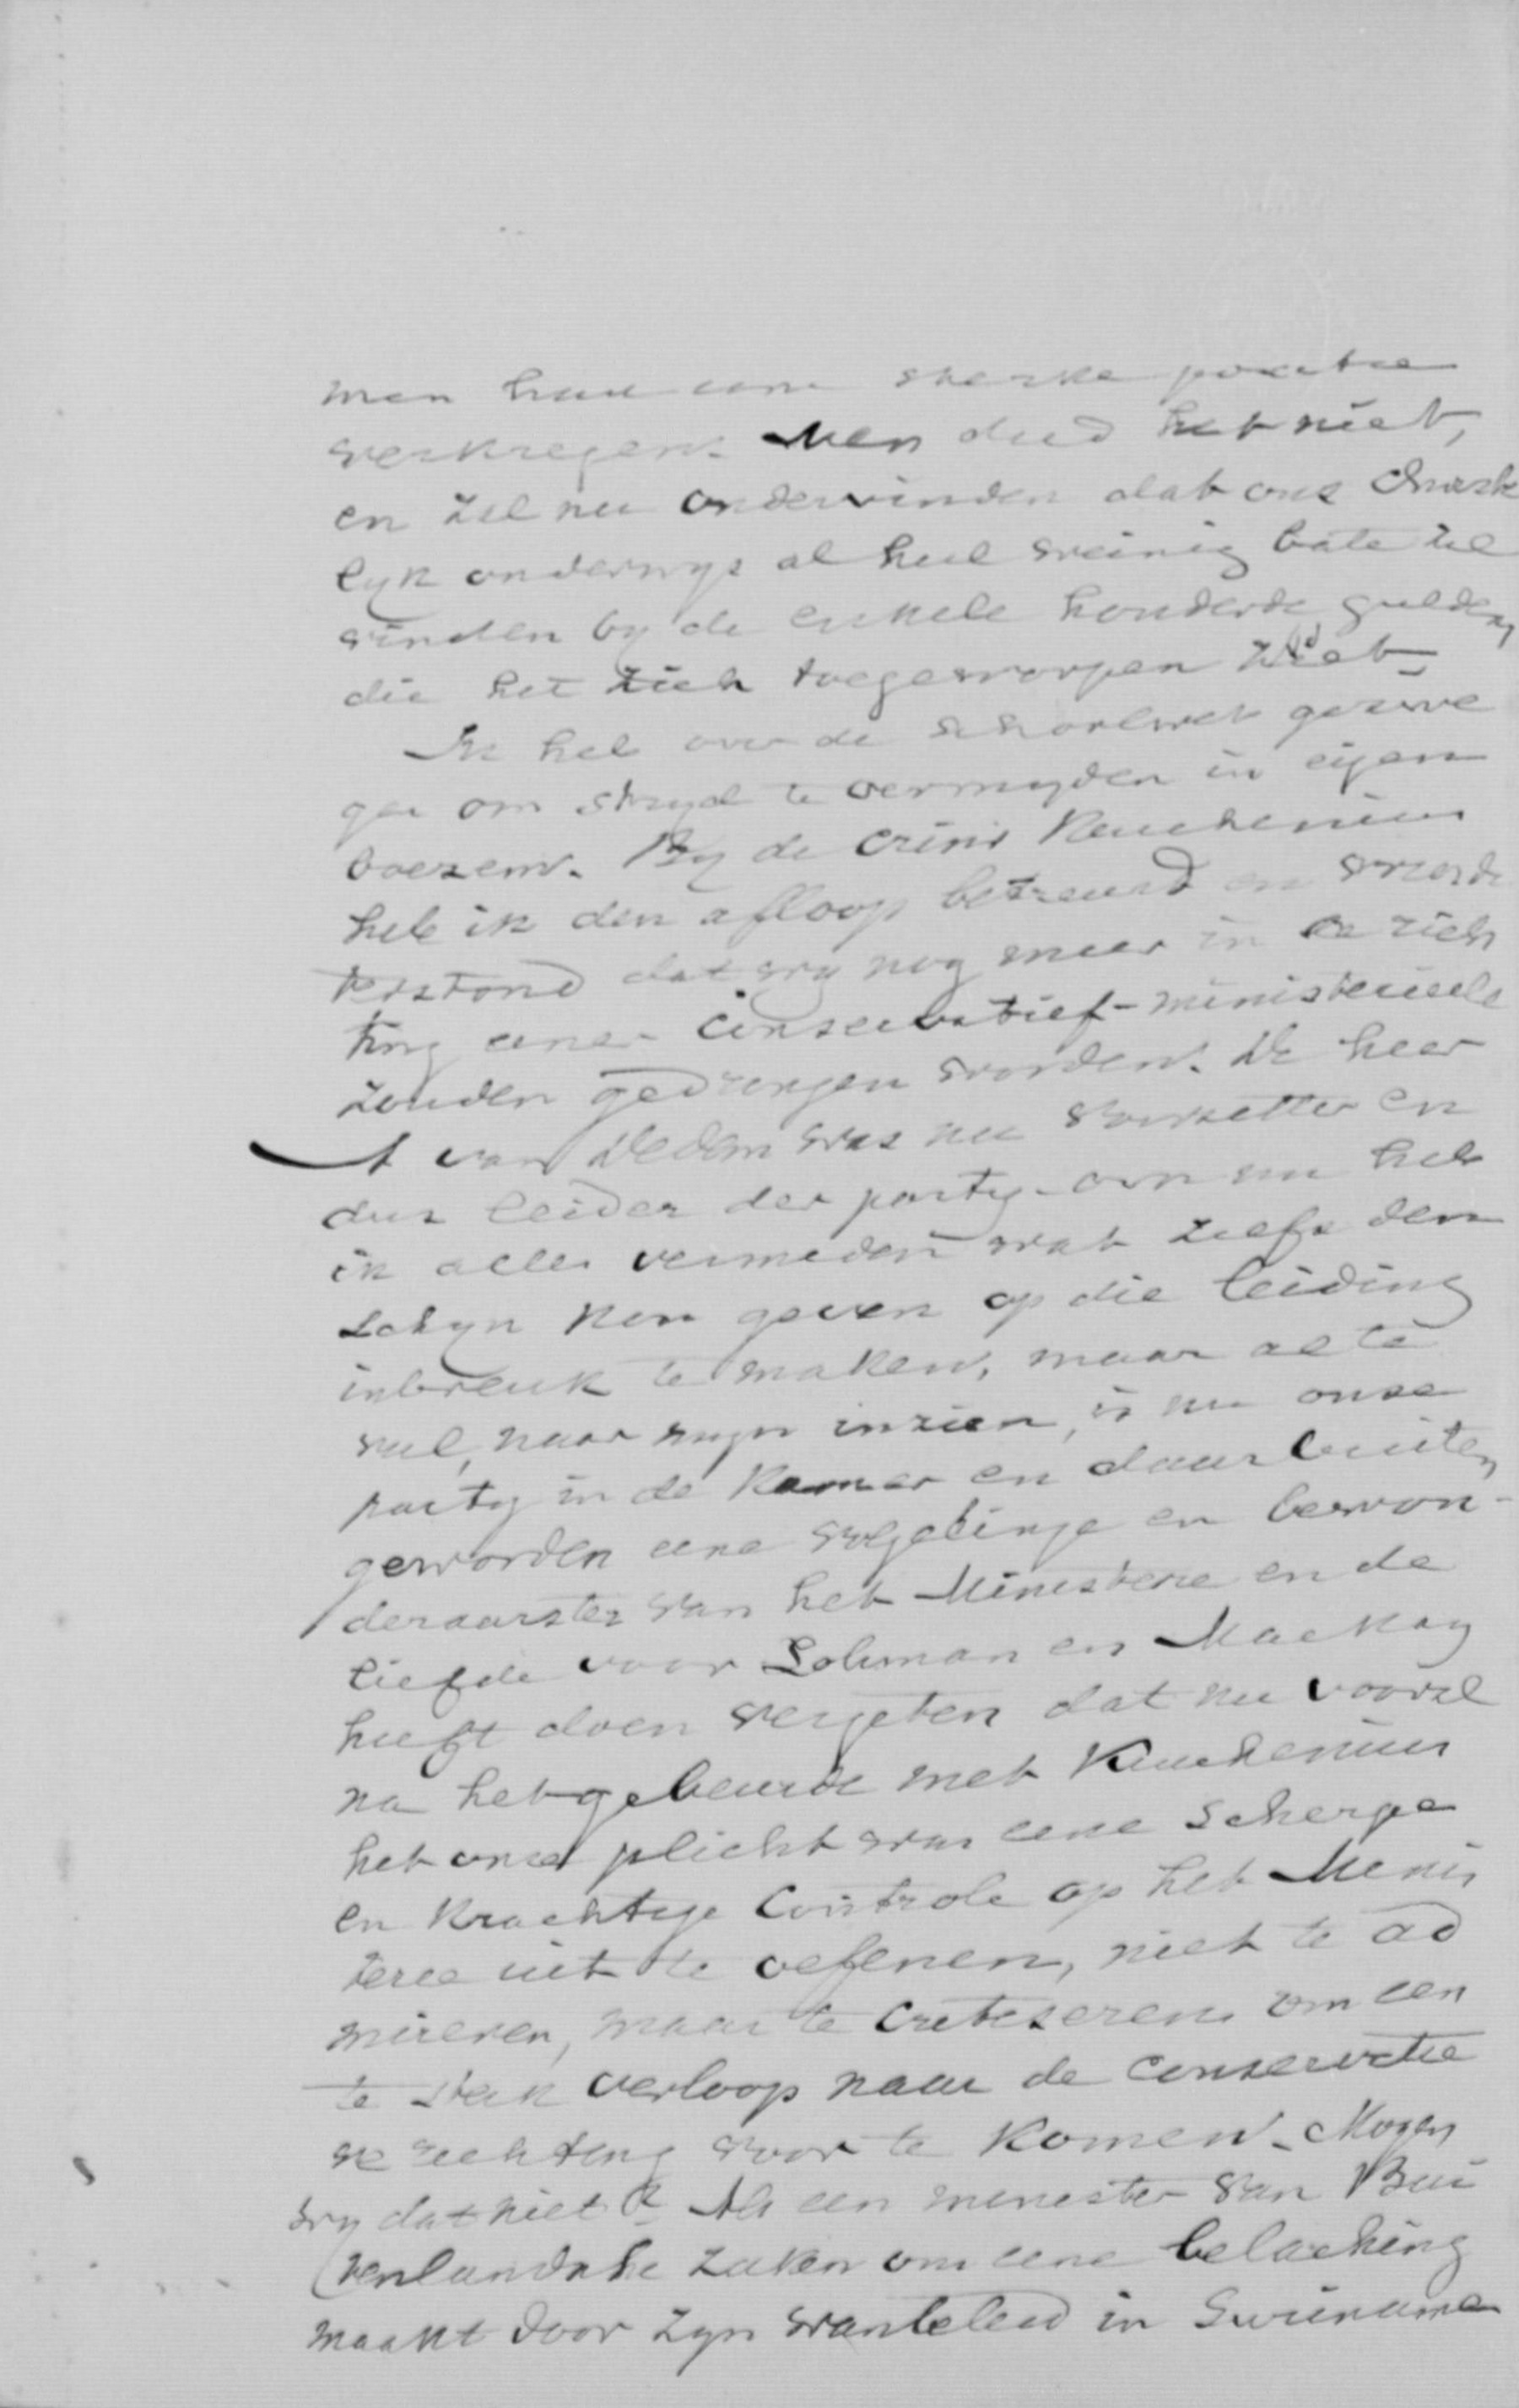 men had een sterke positie
verkregen. Men deed het niet,
en zal nu ondervinden dat ons Christe
lyk onderwys al heel weinig bate zal
vinden by de enkele honderde guldens,
die het zich toegeworpen ziet.
Ik heb over de schoolwet gezwe
gen om stryd te vermyden in eigen
boezem. By de crisis Keuchenius
heb ik den afloop betreurd en voorzde
terstond dat wy nog meer in de rich
ting eener conservatief-ministerieele
zouden gedrongen worden. De heer
A van Dedem was nu voorzitter en
dus leider der party. om nu heb
ik alles vermeden wat zelfs den
schyn kon geven op die leiding
inbreuk te maken, maar al te
veel, naar myn inzien, is nu onze
party in de Kamer en daarbuiten
geworden eene volgelinge en bewon-
deraarster van het Ministerie en de
liefde voor Lohman en Mackay
heeft doen vergeten dat nu vooral
na het gebeurde met Keuchenius
het onze plicht was eene scherpe
en krachtige Controle op het Minis
terie uit te oefenen, niet te ad
mireren, maar te critiseren om een
te sterk verloop naar de conservatie
ve richting voor te komen. Mogen
wy dat niet? Als een minister van Bin
nenlandsche zaken om eene belachin
maakt door zyn wanbeleid in Suriname